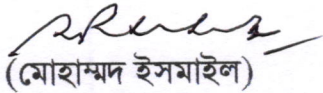 (মোহাম্মদ ইসমাইল)